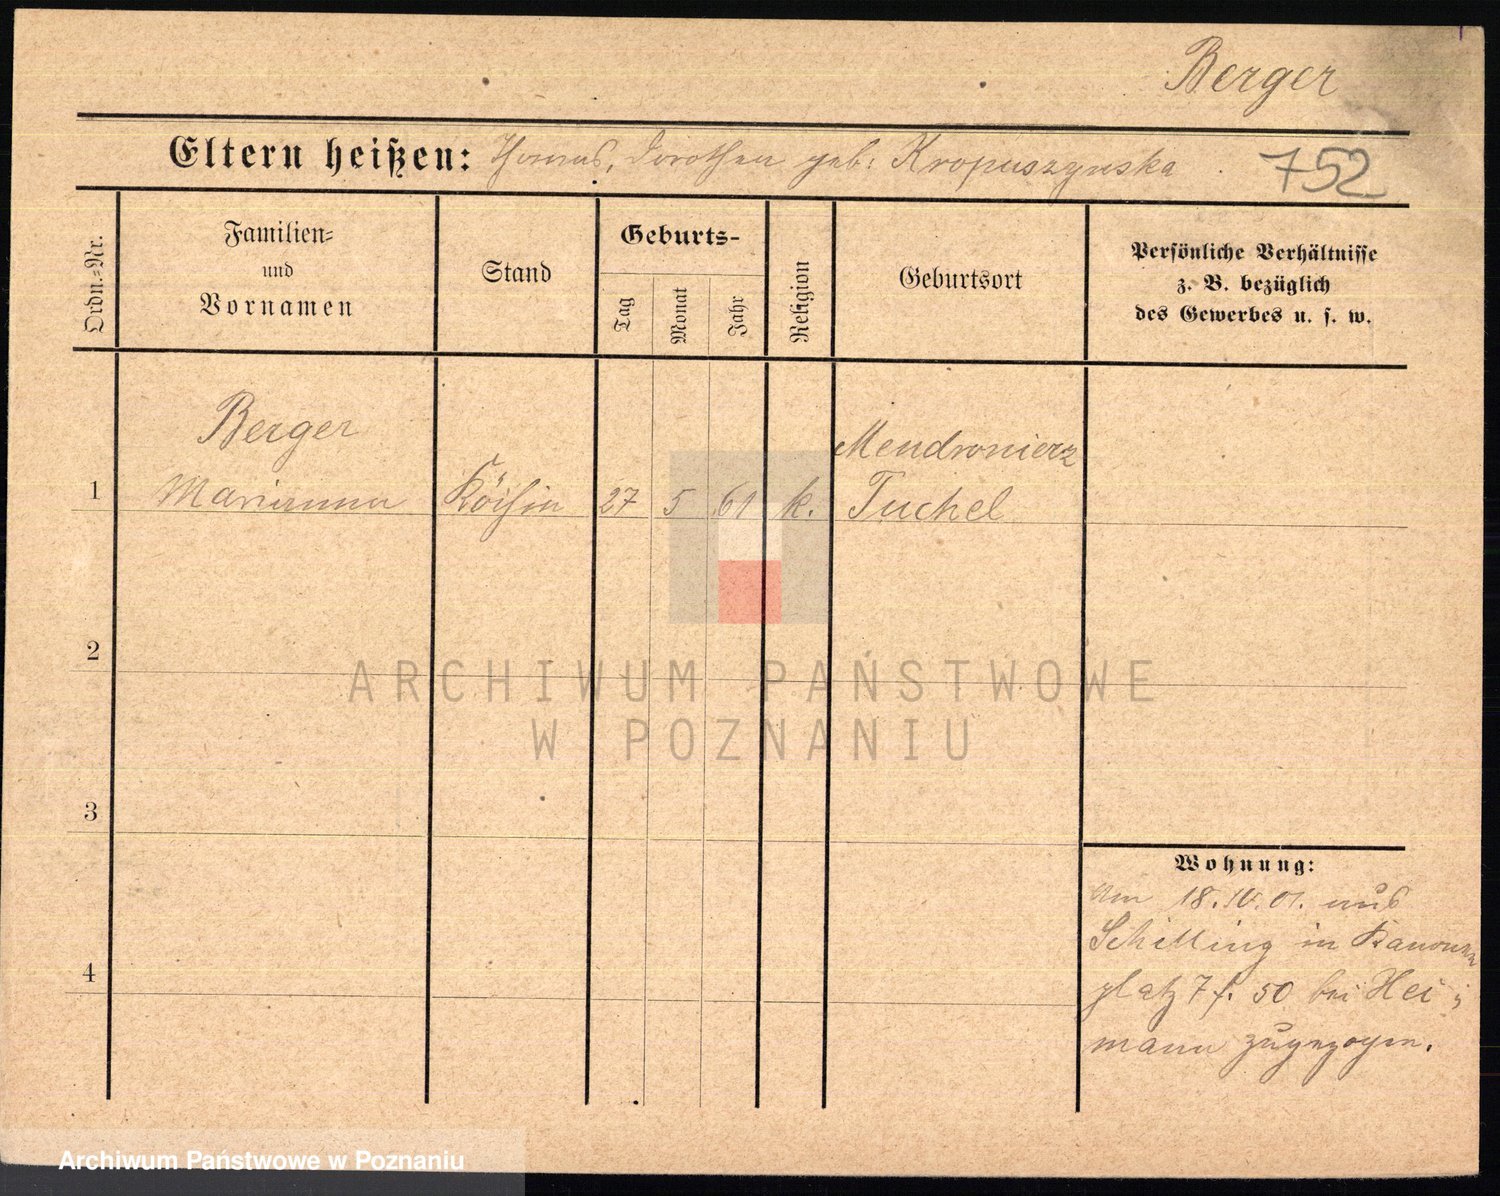 Berger
Eltern heißen: Thomas, Dorothea geb: Kropuszynska
752
Ordn.=Nr.
Familien=
und
Vornamen
Stand
Geburts-
Tag
Monat
Jahr
Religion
Geburtsort
Persönliche Verhältnisse
z. B. bezüglich
des Gewerbes u. s. w.
Berger
1 Marianna Köchin 27 5 61 k. Mendromierz
Tuchel
2
3
4
Wohnung:
Am 18.IV.01. aus
Schilling in Kanonen
platz 7 f. 50 bei Hei
mann zugezogen.
ARCHIWUM PAŃSTWOWE
W POZNANIU
Archiwum Państwowe w Poznaniu